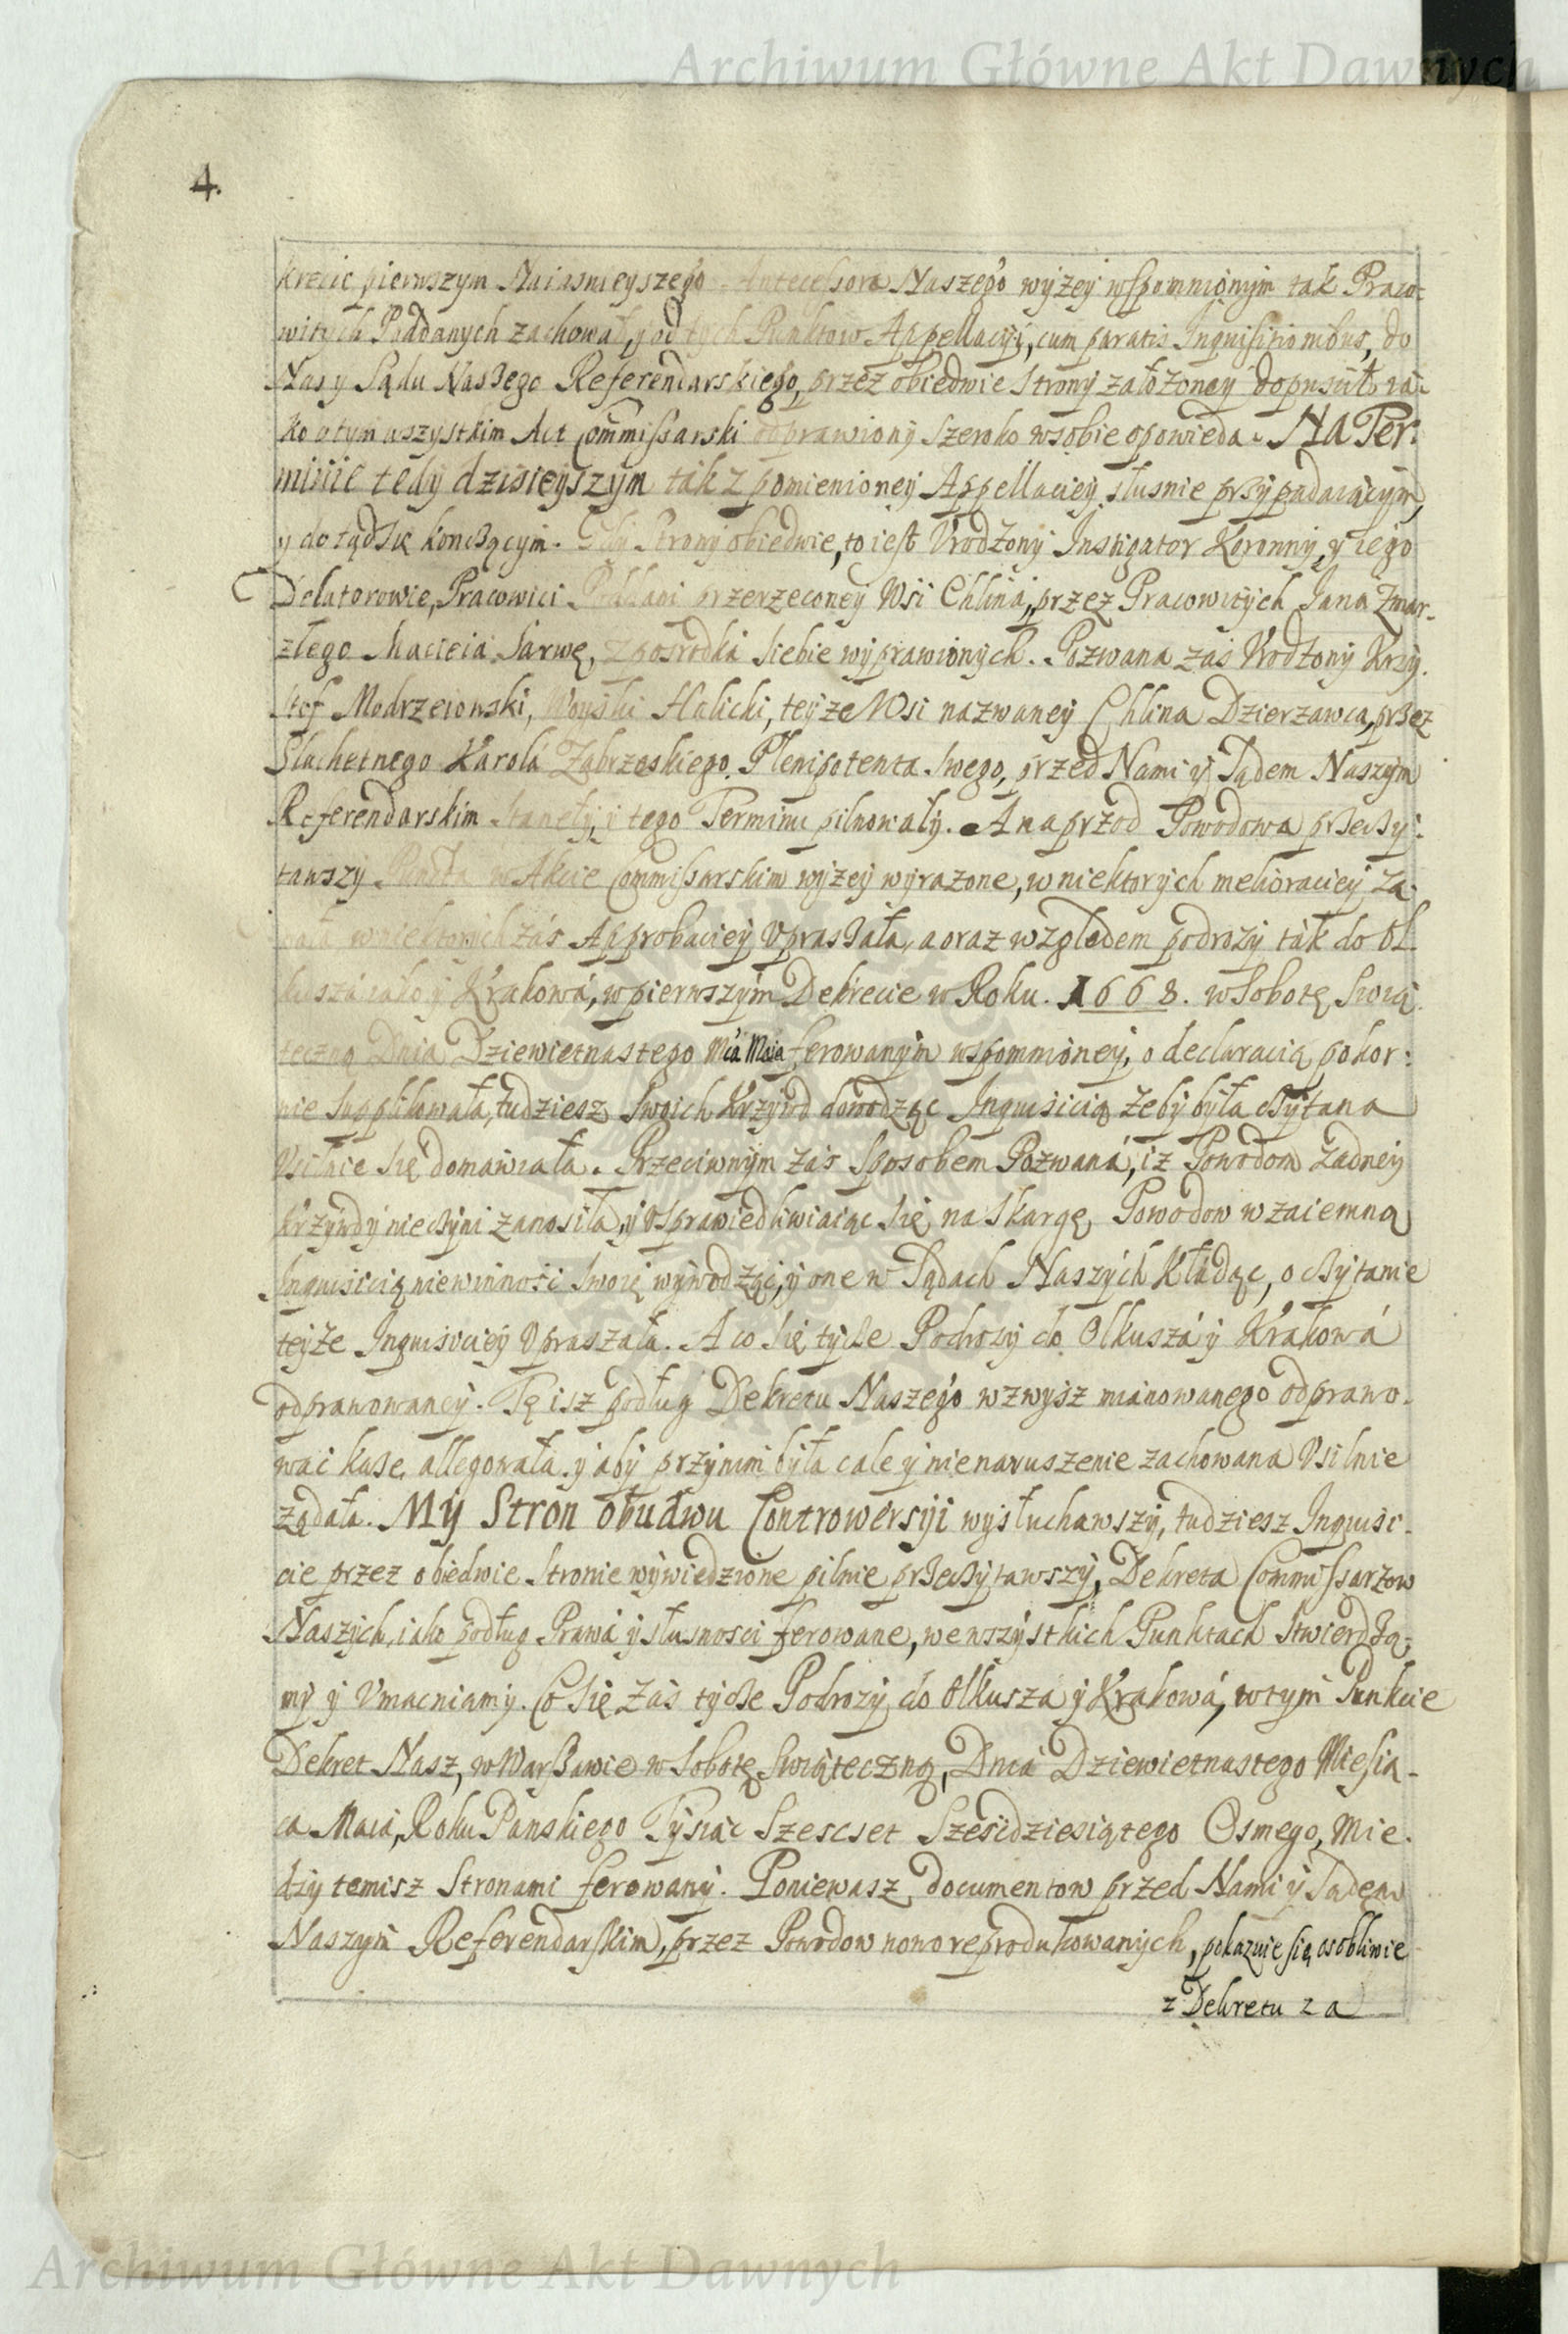 Archiwum Główne Akt Dawnych
4.
krecie pierwszym Naiasnieyszego Antecessora Naszego wyżey wspomnionym tak Praco-
witych Poddanych zachował, y od tych Punktow Appellacyi, cum paratis Inquisitionibus, do
Nas y Sądu Naszego Referendarskiego, przez obiedwie strony założoney dopuścił, ia-
ko o tym wszystkim Act Commissarski odprawiony szeroko w sobie opowieda. NA Ter-
minie tedy dzisieyszym tak z pomienioney Appellaciey słusnie przypadaiącym,
y do tąd się konczącym. Gdy Strony obiedwie, to iest Vrodzony Instigator Koronny, y iego
Delatorowie, Pracowici Poddani przerzeconey Wsi Chlina, przez Pracowitych Jana Zmar-
złego Macieia Sarwę, z posrodka siebie wyprawionych. Pozwana zaś Vrodzony Krzy-
stof Modrzeiowski, Woyski Halicki, teyże Wsi nazwaney Chlina Dzierzawca, przez
Slachetnego Karola Ząbrzeskiego Plenipotenta swego, przed Nami y Sądem Naszym
Referendarskim stanęły, i tego Terminu pilnowały. A naprzod Powodowa przeczy-
tawszy Punkta w Akcie Commissarskim wyżey wyrażone, w niektorych melioraciey żą-
dała w niektorych zaś Approbaciey vpraszała, a oraz względem podrozy tak do Ol-
kusza iako y Krakowa, w pierwszym Dekrecie w Roku. 1668. w Sobotę Swią-
teczną Dnia Dziewietnastego Mca Maia ferowanym wspomnioney, o declaracią pokor-
nie supplikowała, tudziesz swoich Krzywd dowodząc Inquisicią żeby była czytana
Vsilnie się domawiała. Przeciwnym zaś sposobem Pozwana, iż Powodom żadney
krzywdy nieczyni zanosiła, y vsprawiedliwiaiąc się na skargę Powodow wzaiemną
Inquisicią niewinności swoię wywodząc, y one w Sądach Naszych kładąc, o czytanie
teyże Inquisiciey vpraszała. A co się tycze Podrozy do Olkusza y Krakowa
odprawowaney. Tę isz podług Dekretu Naszego wzwysz mianowanego odprawo-
wać każe, allegowała, y aby przy nim była cale y nienaruszenie zachowana Vsilnie
żądała. My Stron obudwu Controwersyi wysłuchawszy, tudziesz Inquisi-
cie przez obiedwie stronie wywiedzione pilnie przeczytawszy, Dekreta Commissarzow
Naszych, iako podług Prawa y słusnosci ferowane, we wszystkich Punktach stwierdza-
my y Vmacniamy. Co się zaś tycze Podrozy do Olkusza y Krakowa, w tym Punkcie
Dekret Nasz, w Warszawie w Sobotę Swiąteczną, Dnia Dziewietnastego Miesią-
ca Maia, Roku Panskiego Tysiąc Szescset Szescdziesiątego Osmego, Mie-
dzy temisz Stronami ferowany. Poniewasz documentow przed Nami y Sądem
Naszym Referendarskim, przez Powodow nowo reprodukowanych, pokazuie się osobliwie
z Dekretu za
Archiwum Główne Akt Dawnych